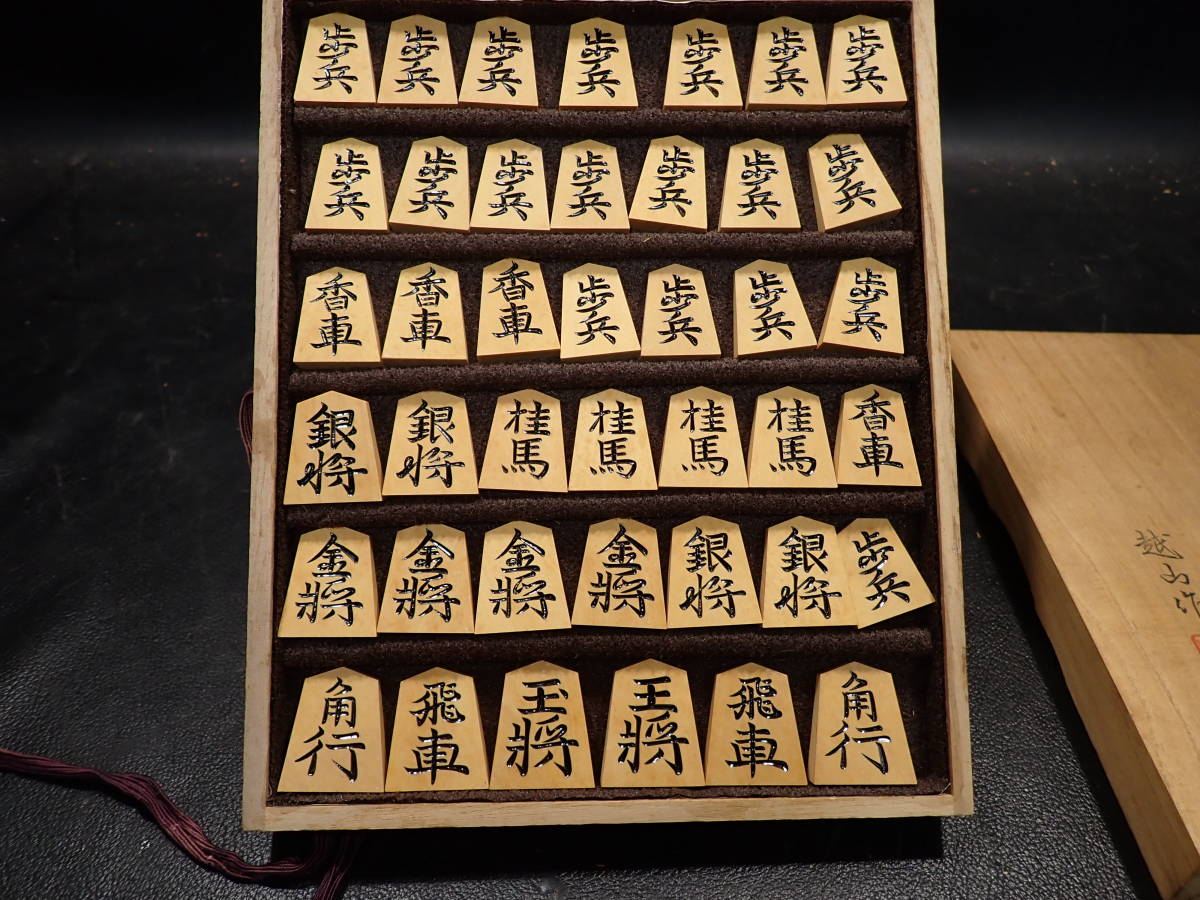 歩兵 歩兵 歩兵 歩兵 歩兵 歩兵 歩兵
歩兵 歩兵 歩兵 歩兵 歩兵 歩兵 歩兵
香車 香車 香車 歩兵 歩兵 歩兵 歩兵
銀将 銀将 桂馬 桂馬 桂馬 桂馬 香車
金將 金將 金將 金將 銀将 銀将 歩兵
角行 飛車 玉將 王將 飛車 角行
越山作